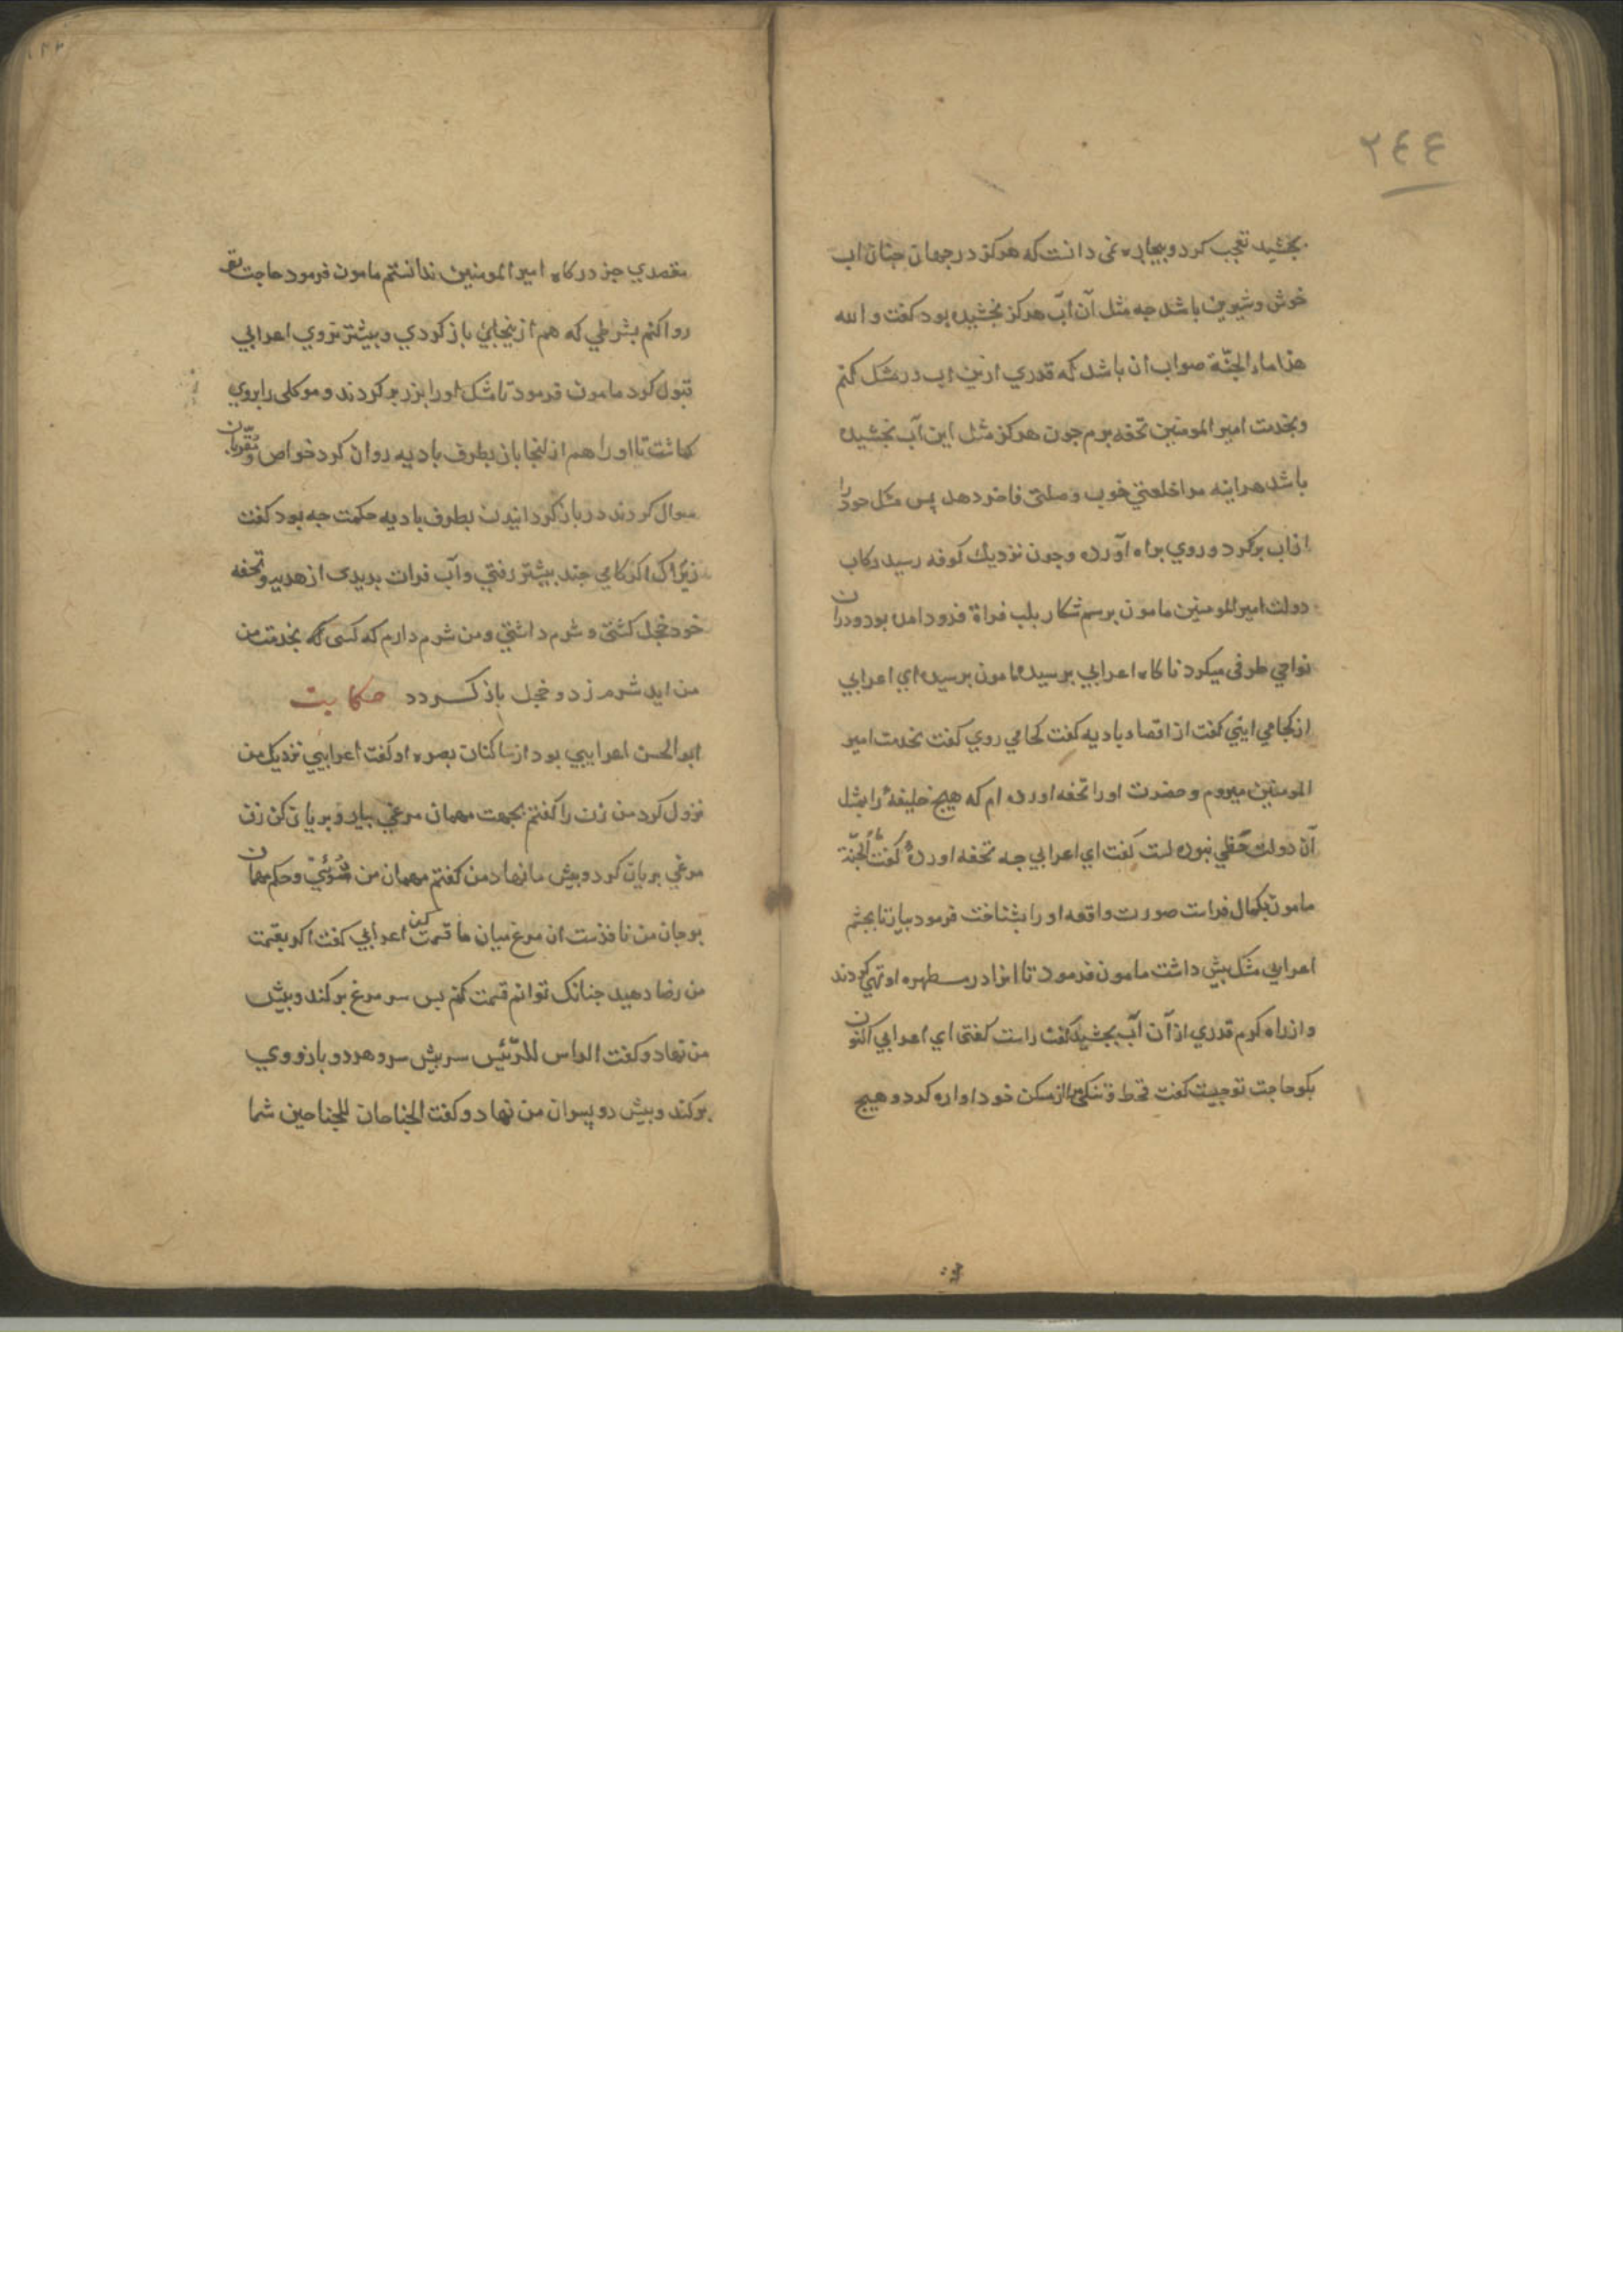 ٢٤٤
بجشید تعجب کرد و بیچاره نمی دانست که هرکز در جهان جنان اب
خوش و شیرین باشد جه مثل آن آب هرکز نجشیده بود کفت و الله
هذا ماء الجنّة صواب ان باشد که قدری ازین اب در مشک کنم
و بخدمت امیر المومنین تحفه برم جون هرکز مثل این آب نجشیده
باشد هراینه مرا خلعتی خوب و صلتی فاخر دهد پس مشک خود را
ازاب برکرد و روی براه آورد و جون نزدیک کوفه رسید رکاب
دولت امیر المومنین مامون برسم شکار بلب فراة فرود امده بود و دران
نواحی طوفی میکرد ناکاه اعرابی برسید مامون برسید ای اعرابی
از کجا می ایئی کفت از اقصاء بادیه کفت کجا می روی کفت بخدمت امیر
المومنین میروم و حضرت او را تحفه اورده ام که هیج خلیفهٔ را بمثل
آن دولت حظی نبوده است کفت ای اعرابی جه تحفه اوردهٔ کفت ماء الجنّة
مامون بکمال فراست صورت واقعه او را بشناخت فرمود بیار تا بجشم
اعرابی مشک بیش داشت مامون فرمود تا انرا در مطهره او تهی کردند
و از راه کرم قدری از آن آب بجشید کفت راست کفتی ای اعرابی اکنون
بکو حاجت تو جیست کفت قحط و تنکی مرا از مسکن خود اواره کرد و هیج
مقصدی جز درکاه امیر المومنین ندانستم مامون فرمود حاجت تو
روا کنم بشرطی که هم از ینجای باز کردی و بیشتر نروی اعرابی
قبول کرد مامون فرمود تا مشک او را بزر بر کردند و موکلی را بروی
کماشت تا او را هم از انجا باز بطرف بادیه روان کرد خواص و مقربان
سوال کردند در باز کردانیدن بطرف بادیه حکمت جه بود کفت
زیراک اکر کامی جند بیشتر رفتی و آب فرات بدیدی از هدیه و تحفه
خود خجل کشتی و شرم داشتی و من شرم دارم که کسی که بخدمت من
من اید شرم زد و خجل باز کردد حکایت
ابو الحسن اعرابیی بود از ساکنان بصره او کفت اعرابیی نزدیک من
نزول کرد من زن را کفتم بجهت مهمان مرغی بیار و بریان کن زن
مرغی بریان کرد و بیش ما نهاد من کفتم مهمان من توئی و حکم مهمان
بر جان من نافذست ان مرغ میان ما قسمت کن اعرابی کفت اکر بقسمت
من رضا دهید جنانک توانم قسمت کنم بس سر مرغ برکند و بیش
من نهاد و کفت الراس للرّئیس سر بیش سر و هر دو بازو وی
برکند و بیش دو پسران من نهاد و کفت الجناحان للجناحین شما